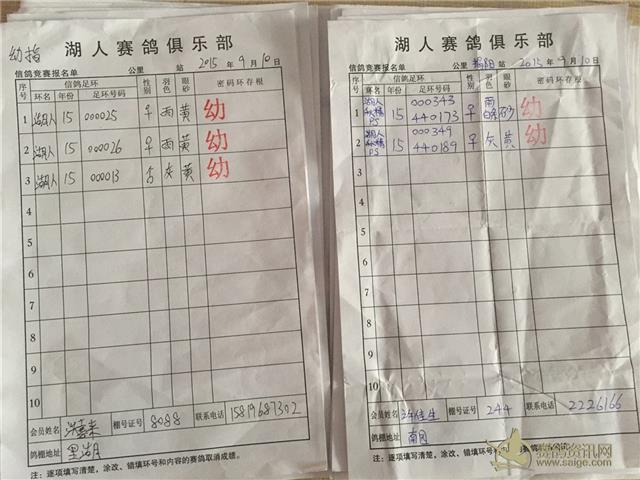 幼指
湖人赛鸽俱乐部
信鸽竞赛报名单 公里 站 2015年9月10日
序号 信鸽足环 性别 羽色 眼砂 密码环存根
环名 年份 足环号码
1 湖人 15 000025 雨 黄 幼
2 湖人 15 000026 雨 黄 幼
3 湖人 15 000013 灰 黄 幼
4
5
6
7
8
9
10
会员姓名 棚号证号 8088 联系电话 15819687302
鸽棚地址 里湖
注：逐项填写清楚，涂改、错填环号和内容的赛鸽取消成绩。
湖人赛鸽俱乐部
信鸽竞赛报名单 公里 揭阳 站 2015年9月10日
序号 信鸽足环 性别 羽色 眼砂 密码环存根
环名 年份 足环号码
1 湖人 PS 15 000343 440173 砂 幼
2 湖人 PS 15 000349 440189 灰 黄 幼
3
4
5
6
7
8
9
10
会员姓名 许佳生 棚号证号 244 联系电话 2226166
鸽棚地址 南园
注：逐项填写清楚，涂改、错填环号和内容的赛鸽取消成绩。
赛鸽资讯网
www.saige.com